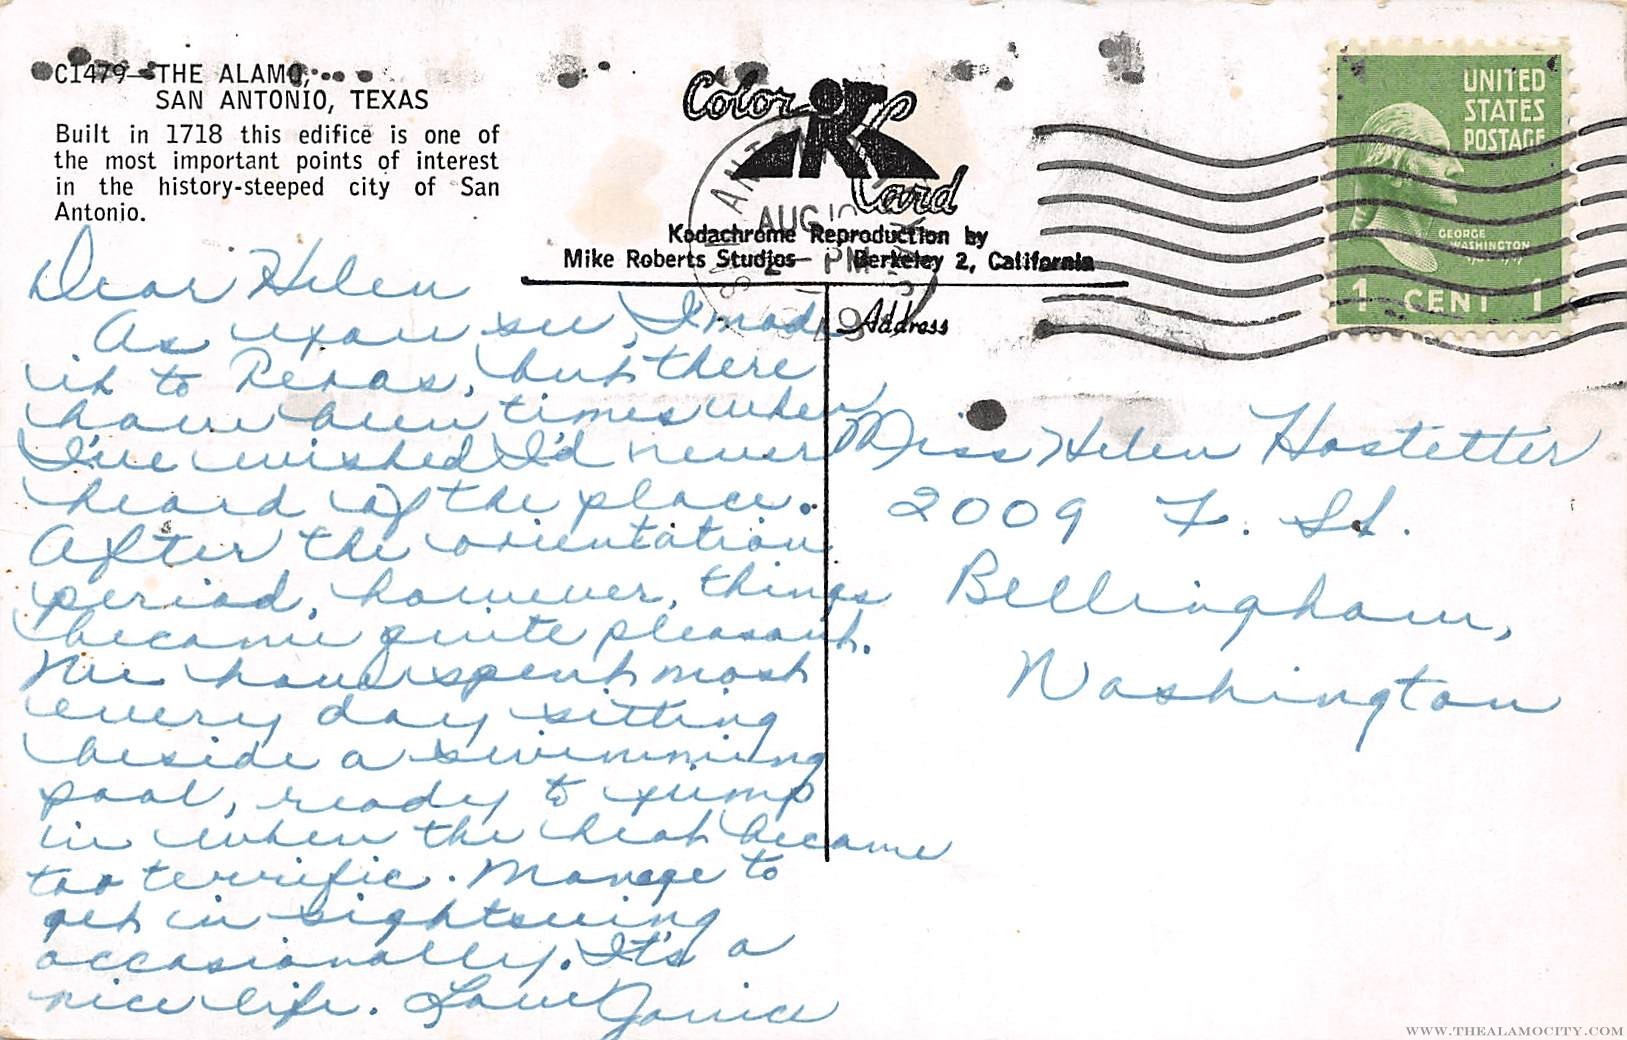 C1479—THE ALAMO,
SAN ANTONIO, TEXAS
Built in 1718 this edifice is one of
the most important points of interest
in the history-steeped city of San
Antonio.
Color
Card
Kodachrome Reproduction by
Mike Roberts Studios — Berkeley 2, California
Address
SAN ANTONIO
AUG
PM
UNITED
STATES
POSTAGE
GEORGE
WASHINGTON
1 CENT 1
Dear Helen
As you see, I made
it to Texas, but there
have been times when
I've wished I'd never
heard of the place.
After the orientation
period, however, things
became quite pleasant.
We have spent most
every day sitting
beside a swimming
pool, ready to jump
in when the heat became
too terrific. Manage to
get in sightseeing
occasionally. It's a
nice life. Love Janice
Miss Helen Hostetter
2009 F. St.
Bellingham,
Washington
WWW.THEALAMOCITY.COM